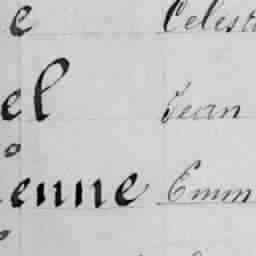 e Célest
el Jean
enne Emm